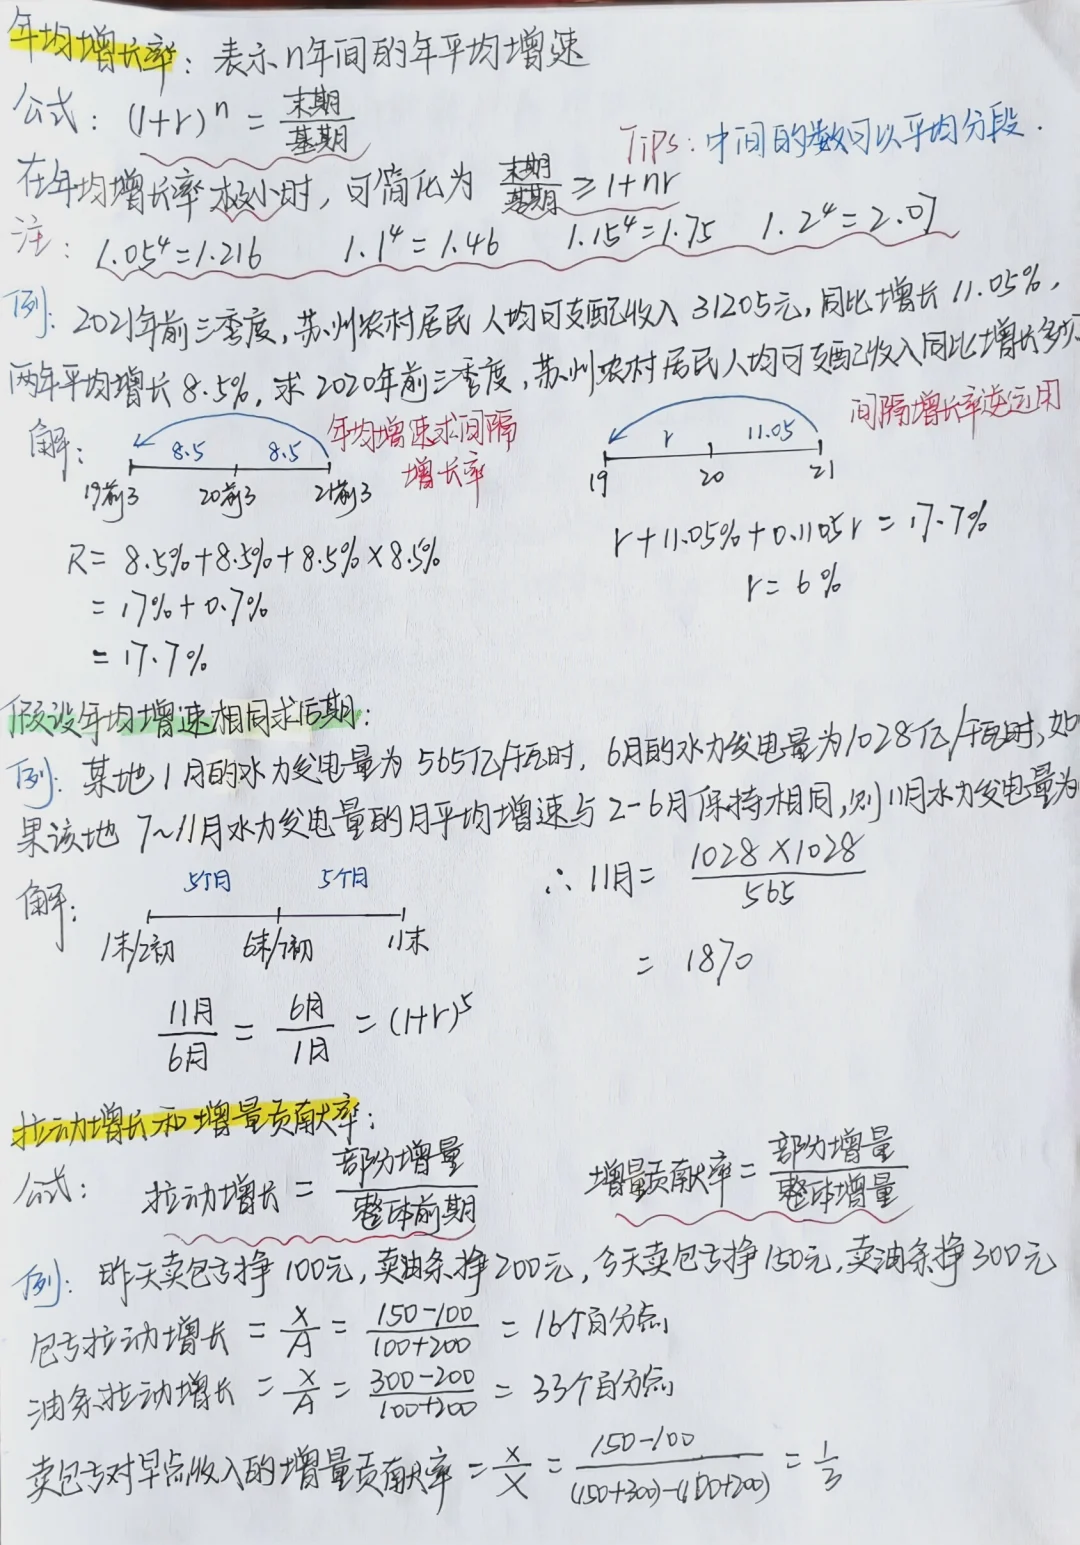 年均增长率：表示n年间的年平均增速
公式：(1+r)ⁿ = 末期/基期
Tips：中间的数可以平均分段.
在年均增长率极小时，可简化为 末期/基期 ≥ 1+nr
注：1.05⁴=1.216 1.1⁴=1.46 1.15⁴=1.75 1.2⁴=2.07
例：2021年前三季度，苏州农村居民人均可支配收入31205元，同比增长11.05%，
两年平均增长8.5%，求2020年前三季度，苏州农村居民人均可支配收入同比增长多少？
解：
8.5 8.5
19前3 20前3 21前3
年均增速求间隔
增长率
r 11.05
19 20 21
间隔增长率逆运用
R = 8.5%+8.5%+8.5%×8.5%
= 17%+0.7%
= 17.7%
r+11.05%+0.1105r = 17.7%
r = 6%
假设年均增速相同求后期：
例：某地1月的水力发电量为565亿千瓦时，6月的水力发电量为1028亿千瓦时，如
果该地7~11月水力发电量的月平均增速与2-6月保持相同，则11月水力发电量为
解：
5个月 5个月
1末/2初 6末/7初 11末
∴ 11月 = 1028×1028/565
= 1870
11月/6月 = 6月/1月 = (1+r)⁵
拉动增长和增量贡献率：
公式：拉动增长 = 部分增量/整体前期 增量贡献率 = 部分增量/整体增量
例：昨天卖包子挣100元，卖油条挣200元，今天卖包子挣150元，卖油条挣300元
包子拉动增长 = X/A = 150-100/100+200 = 16个百分点
油条拉动增长 = X/A = 300-200/100+200 = 33个百分点
卖包子对早点收入的增量贡献率 = X/X = 150-100/(150+300)-(100+200) = 1/3